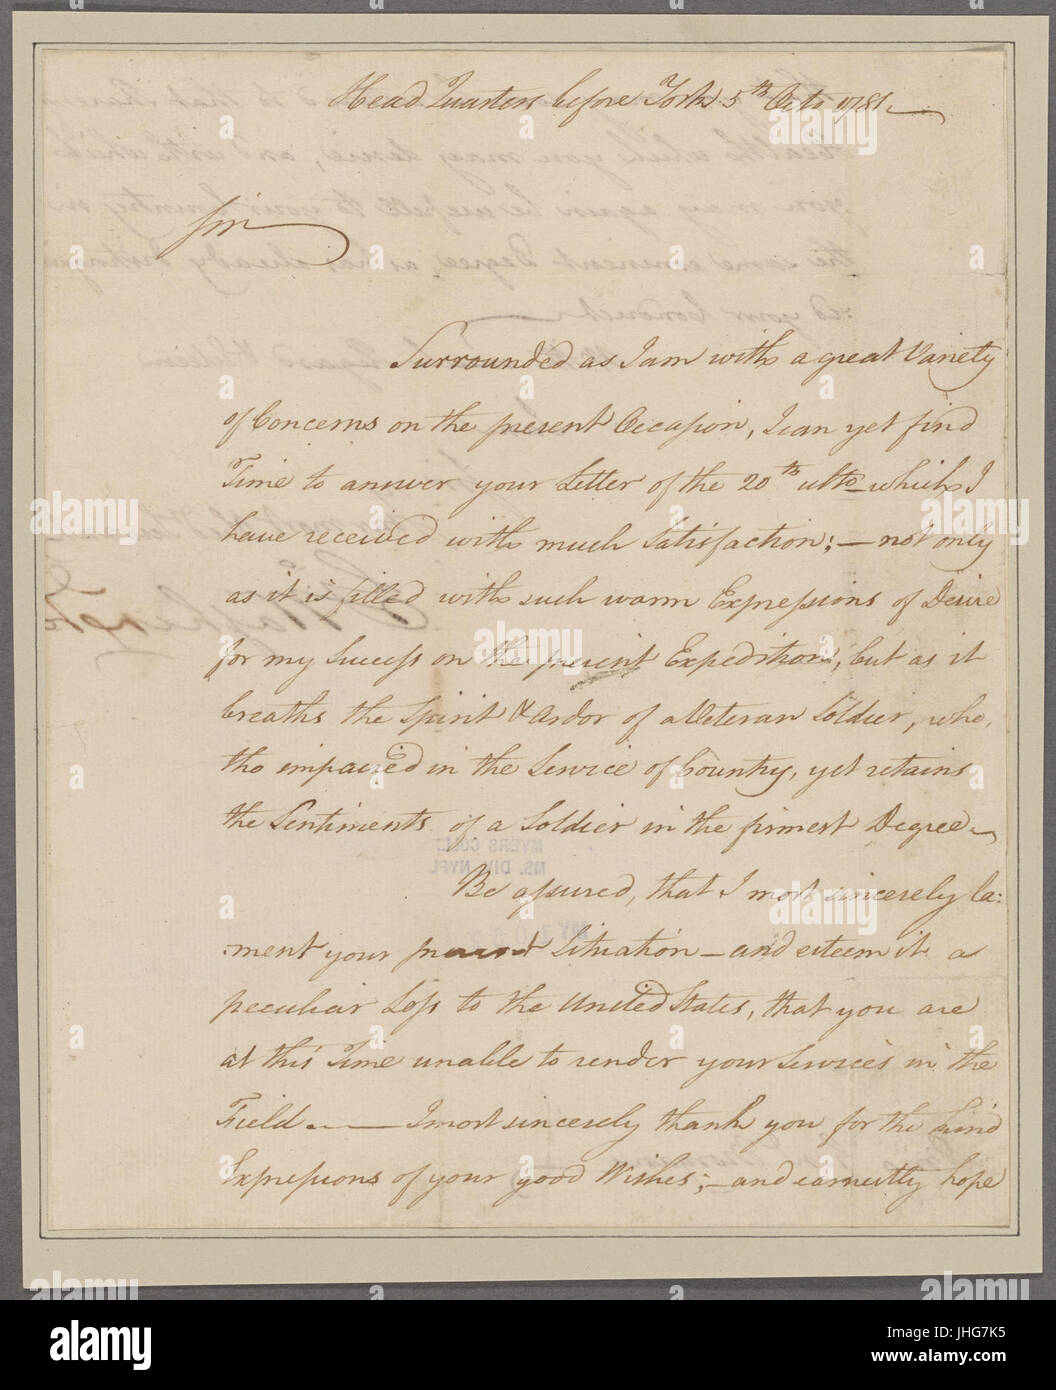 Head Quarters before York 5th Octo 1781.
Sir
Surrounded as I am with a great Variety
of Concerns on the present Occasion, I can yet find
Time to answer your Letter of the 20th ulto which I
have received with much Satisfaction; — not only
as it is filled with such warm Expressions of Desire
for my Success on the present Expedition, but as it
breaths the Spirit & Ardor of a Veteran Soldier, who,
tho impaired in the Service of Country, yet retains
the Sentiments of a Soldier in the firmest Degree —
MYERS COLL.
MS. DIV. NYPL
Be assured, that I most sincerely la:
:ment your present Situation — and esteem it a
peculiar Loss to the United States, that you are
at this Time unable to render your Services in the
Field. — I most sincerely thank you for the kind
Expressions of your good Wishes; — and earnestly hope
alamy
a
alamy stock photo
Image ID: JHG7K5
www.alamy.com